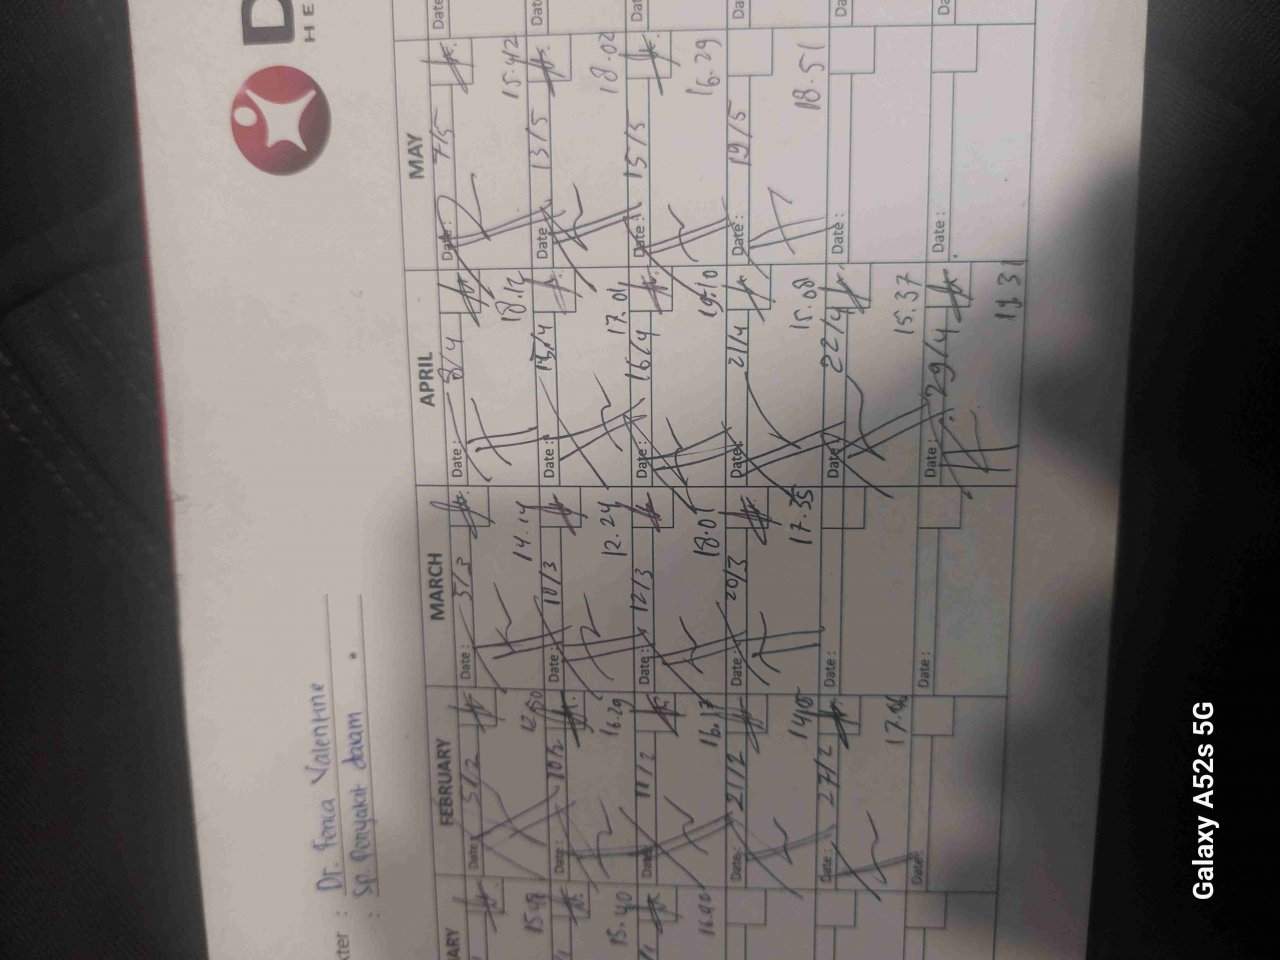 D
HE
kter : Dr. Fenca Valentine
: Sp. Penyakit dalam
ARY FEBRUARY MARCH APRIL MAY
Date : 5/2 Date : 5/3 Date : 8/4 Date : 7/5 Date
12.50 14.14 15.42
Date : 10/2 Date : 10/3 Date : Date : 13/5 Date
15.40 16.29 12.24 17.01 18.02
Date : 11/2 Date : 12/3 Date : 16/4 Date : 15/5 Date
16.17 18.01 19.10 16.29
Date : 21/2 Date : 20/3 Date : 21/4 Date : 19/5 Date
17.35 15.08 18.51
Date : 27/2 Date : Date : 22/4 Date : Da
15.37
Date : Date : Date : 29/4 Date : Da
19.31
Galaxy A52s 5G